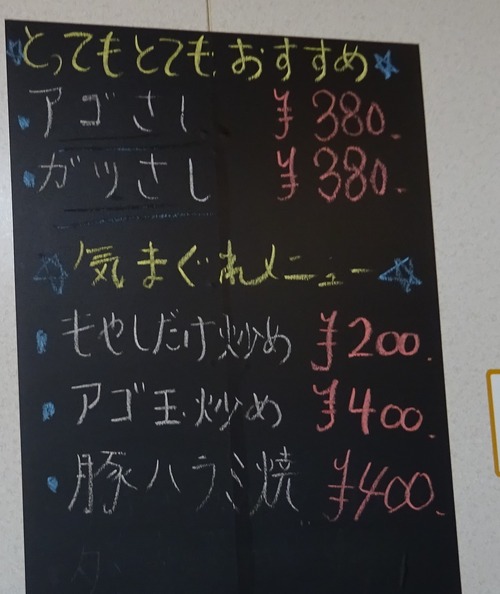 とってもとてもおすすめ
・アゴさし ¥380.
・ガツさし ¥380.
気まぐれメニュー
・もやしだけ炒め ¥200.
・アゴ玉炒め ¥400.
・豚ハラミ焼 ¥400.